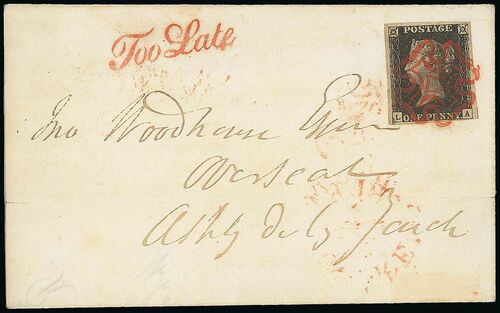 Too Late
POSTAGE
L ONE PENNY A
Jno Woodhouse Esqr
Overseal
Ashby de la Zouch